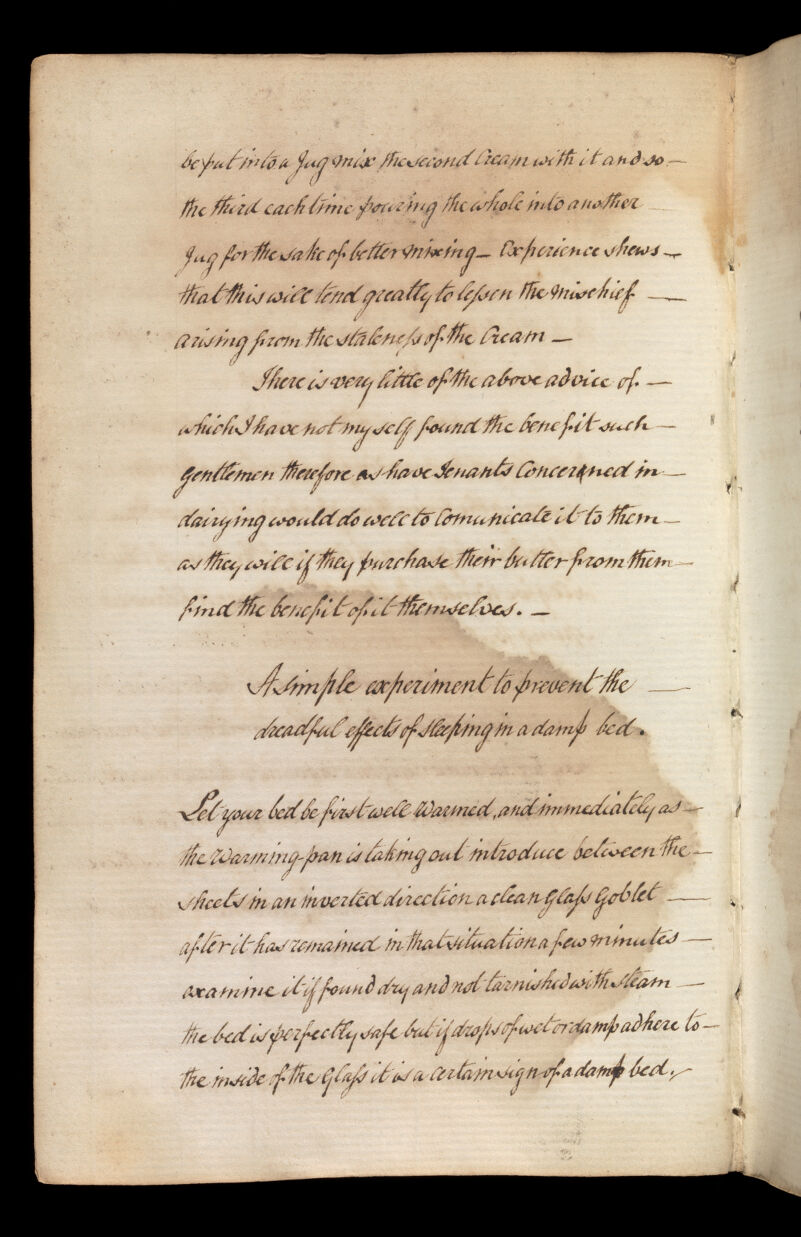 be put into a Jug mix the second Cream with it and so —
the third each time pouring the whole into another —
Jug for the sake of better mixing — Experience shews —
that this will tend greatly to leſsen the mischief —
arising from the staleneſs of the Cream —
There is very little of the above advice of —
which I have not my self found the benefit such —
Gentlemen therefore as have Tenants Concerned in —
dairying would do well to Comunicate it to them —
as they will if they purchase their butter from them —
find the benefit of it themselves. —
A simple experiment to prevent the —
dreadful effects of sleeping in a damp bed.
Let your bed be first well warmed, and immediately as —
the warming-pan is taking out introduce between the —
sheets in an inverted direction a clean Glaſs Goblet —
after it has remained in that situation a few minutes —
examine it if found dry and not tarnished with steam —
the bed is perfectly safe but if drops of wet or damp adhere to —
the inside of the Glaſs it is a certain sign of a damp bed.